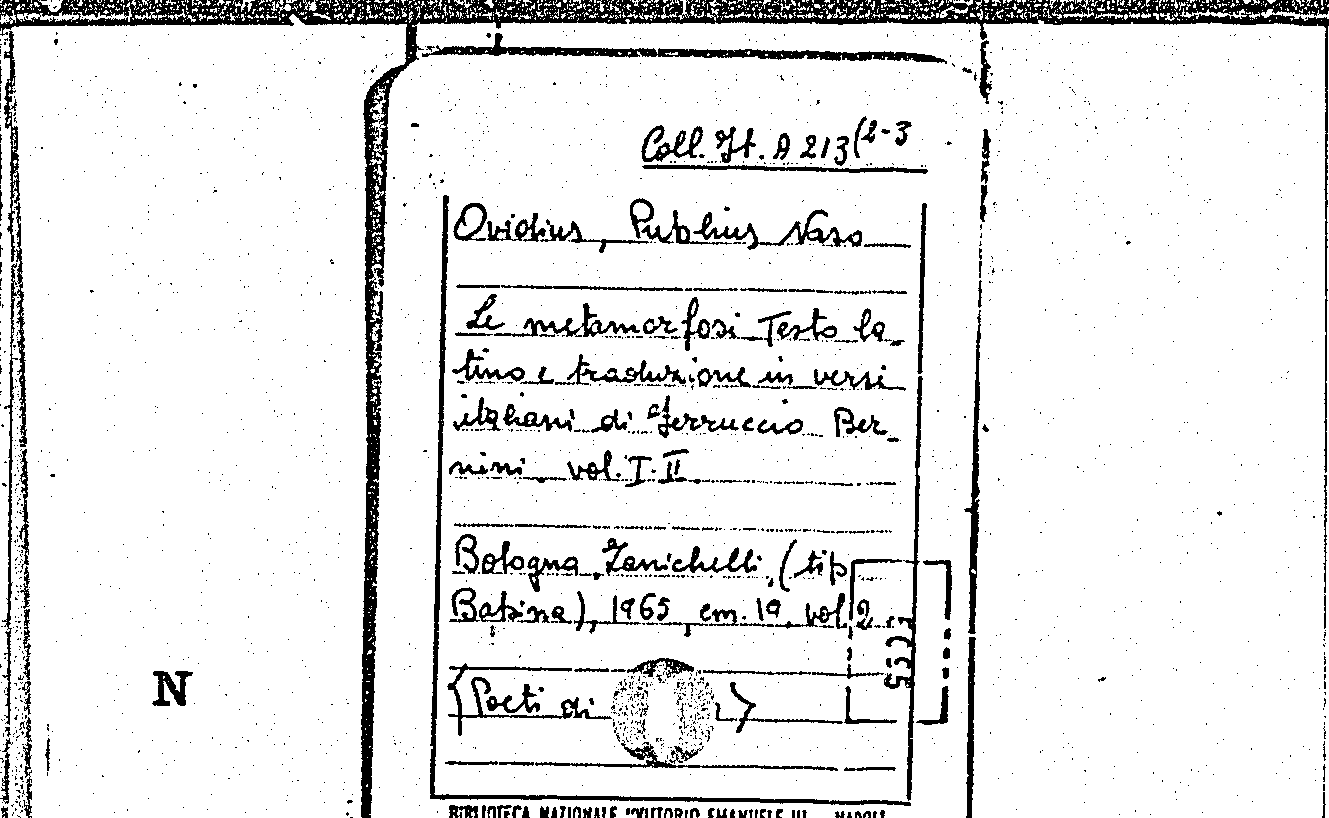 Coll. It. A 213(2-3
Ovidius, Publius Naso
Le metamorfosi Testo la-
tino e traduzione in versi
italiani di Ferruccio Ber-
nini. vol. I-II
Bologna, Zanichelli, (tip
), 1965, cm. 19. vol. 2.
N
{Poeti di
BIBLIOTECA NAZIONALE "VITTORIO EMANUELE III - NAPOLI